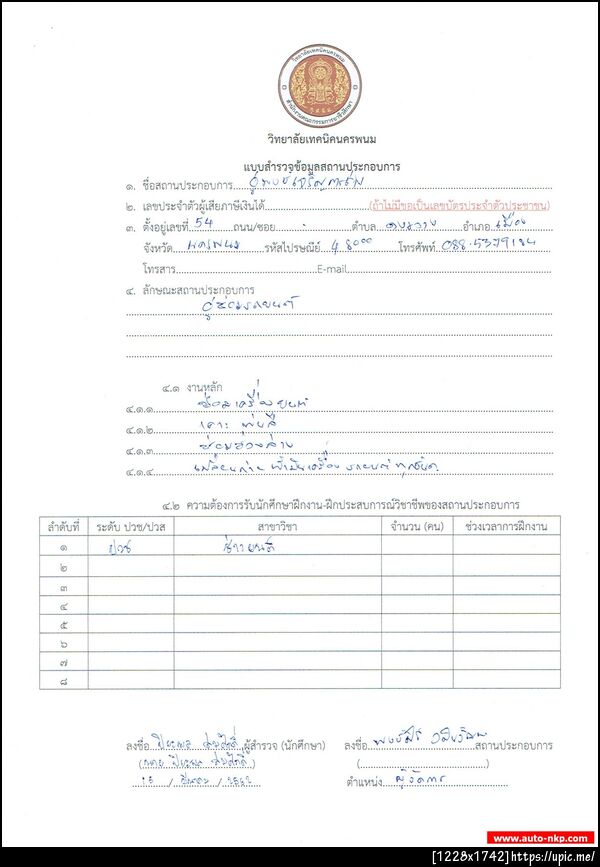 วิทยาลัยเทคนิคนครพนม
สำนักงานคณะกรรมการการอาชีวศึกษา
วิทยาลัยเทคนิคนครพนม
แบบสำรวจข้อมูลสถานประกอบการ
๑. ชื่อสถานประกอบการ
๒. เลขประจำตัวผู้เสียภาษีเงินได้ (ถ้าไม่มีขอเป็นเลขบัตรประจำตัวประชาชน)
๓. ตั้งอยู่เลขที่ 54 ถนน/ซอย - ตำบล อำเภอ เมือง
จังหวัด นครพนม รหัสไปรษณีย์ 48000 โทรศัพท์ 088-5379184
โทรสาร E-mail
๔. ลักษณะสถานประกอบการ
อู่ซ่อมรถยนต์
๔.๑ งานหลัก
๔.๑.๑ ซ่อมเครื่องยนต์
๔.๑.๒ เคาะ พ่นสี
๔.๑.๓ ซ่อมช่วงล่าง
๔.๑.๔ เปลี่ยนถ่ายน้ำมันเครื่อง รถยนต์ ทุกชนิด
๔.๒ ความต้องการรับนักศึกษาฝึกงาน-ฝึกประสบการณ์วิชาชีพของสถานประกอบการ
ลำดับที่ ระดับ ปวช/ปวส สาขาวิชา จำนวน (คน) ช่วงเวลาการฝึกงาน
๑ ปวช ช่างยนต์
๒
๓
๔
๕
๖
๗
๘
ลงชื่อ ผู้สำรวจ (นักศึกษา) ลงชื่อ สถานประกอบการ
(นาย ) ( )
/ / 2562 ตำแหน่ง ผู้จัดการ
www.auto-nkp.com
[1228x1742]https://upic.me/